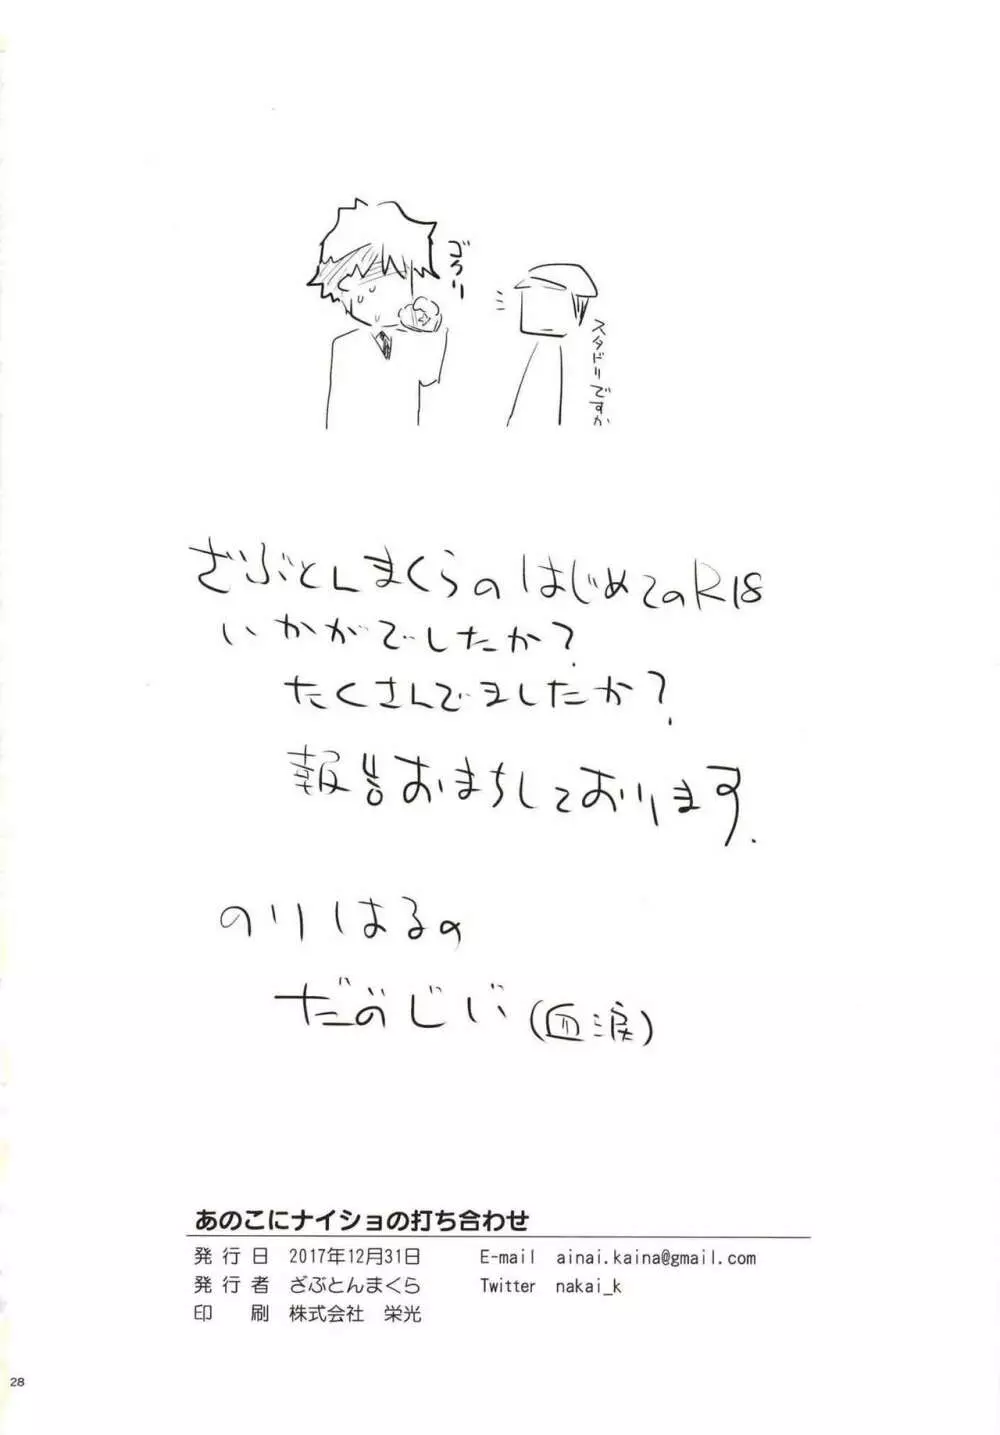 ゴクリ
スタドリですか
ざぶとんまくらのはじめてのR18
いかがでしたか?
たくさんでましたか?
報告おまちしております.
のりはるの
だおじじい(血涙)
あのこにナイショの打ち合わせ
発行日 2017年12月31日 E-mail ainai.kaina@gmail.com
発行者 ざぶとんまくら Twitter nakai_k
印 刷 株式会社 栄光
28